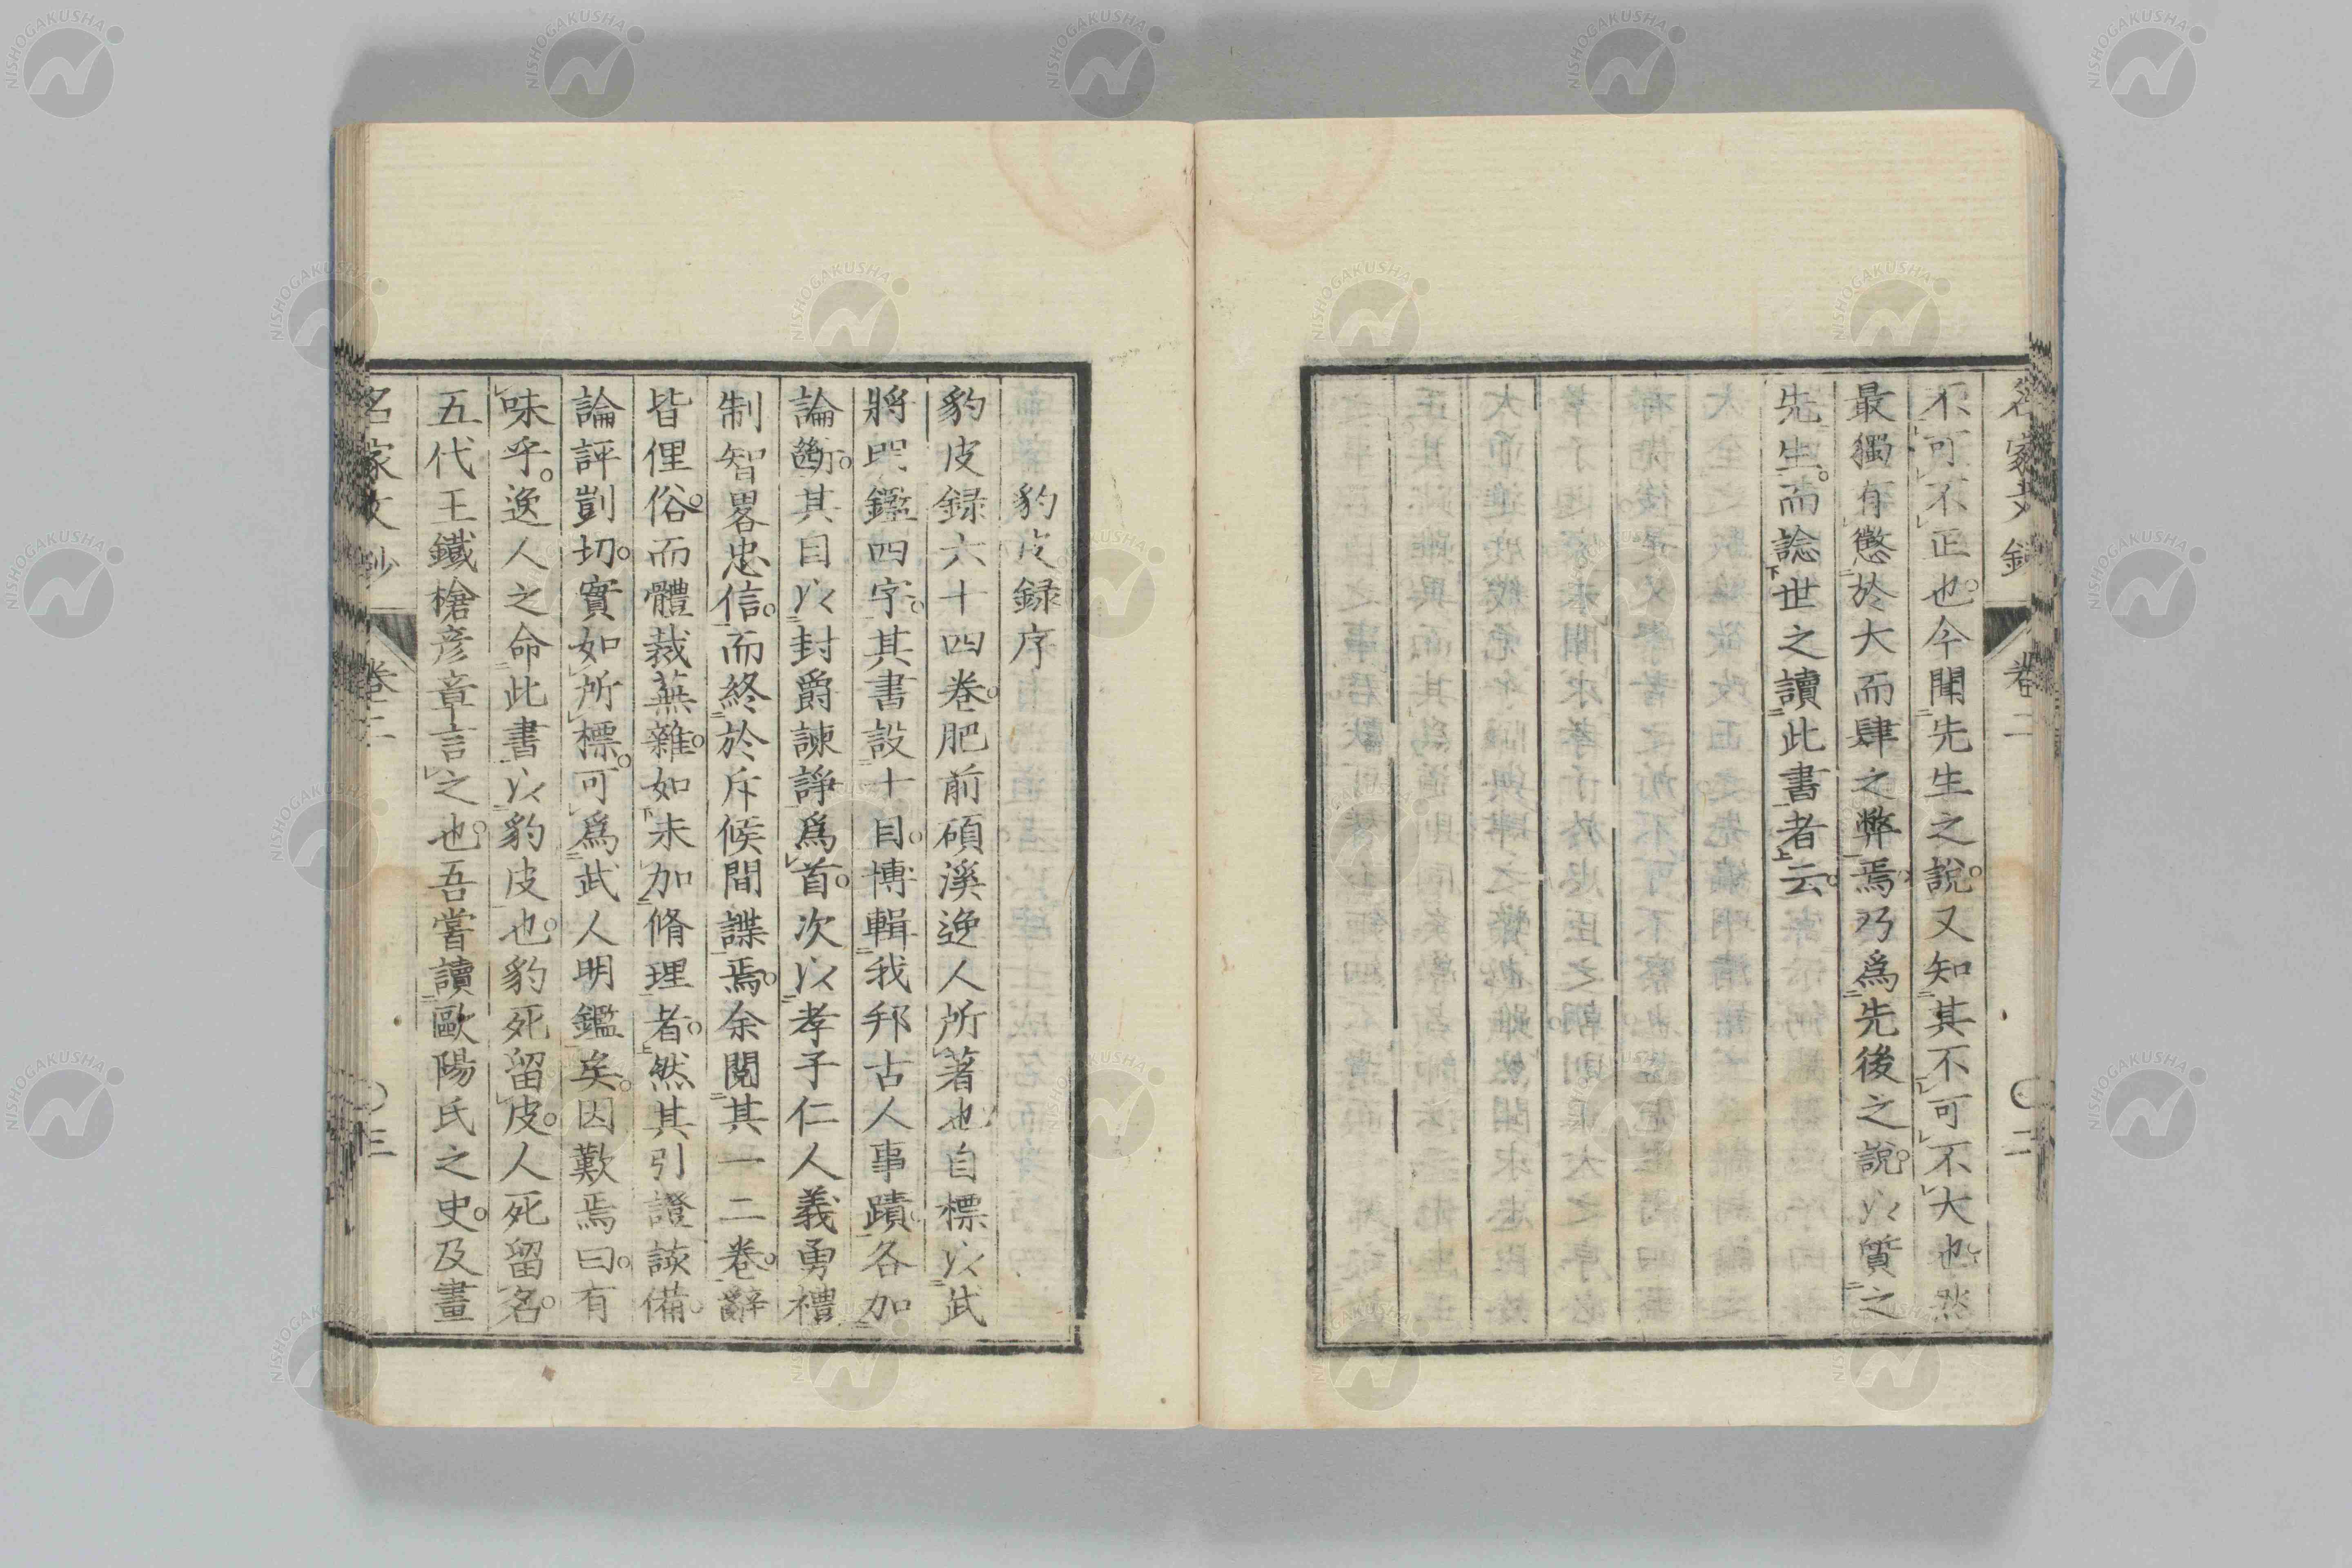 名家文鈔 卷二 〇二
不可不正也。今聞先生之說。又知其不可不大也。然
最獨有懲於大而肆之弊焉。乃爲先後之說。以質之
先生。而諗世之讀此書者云。
豹皮録序
豹皮録六十四卷。肥前碩溪逸人所著也。自標以武
將明鑑四字。其書設十目。博輯我邦古人事蹟。各加
論斷。其目以封爵諫諍爲首。次以孝子仁人義勇禮
制智畧忠信。而終於斥候間諜焉。余閱其一二卷。辭
皆俚俗。而體裁蕪雜。如未加脩理者。然其引證該備。
論評剴切。實如所標。可爲武人明鑑矣。因歎焉曰。有
味乎。逸人之命此書以豹皮也。豹死留皮。人死留名。
五代王鐵槍彦章言之也。吾嘗讀歐陽氏之史。及畫
名家文鈔 卷二 〇三
NISHOGAKUSHA